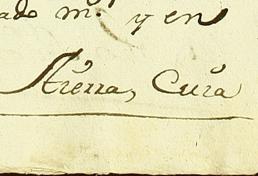 ado m.º y en
Arenra, Cura